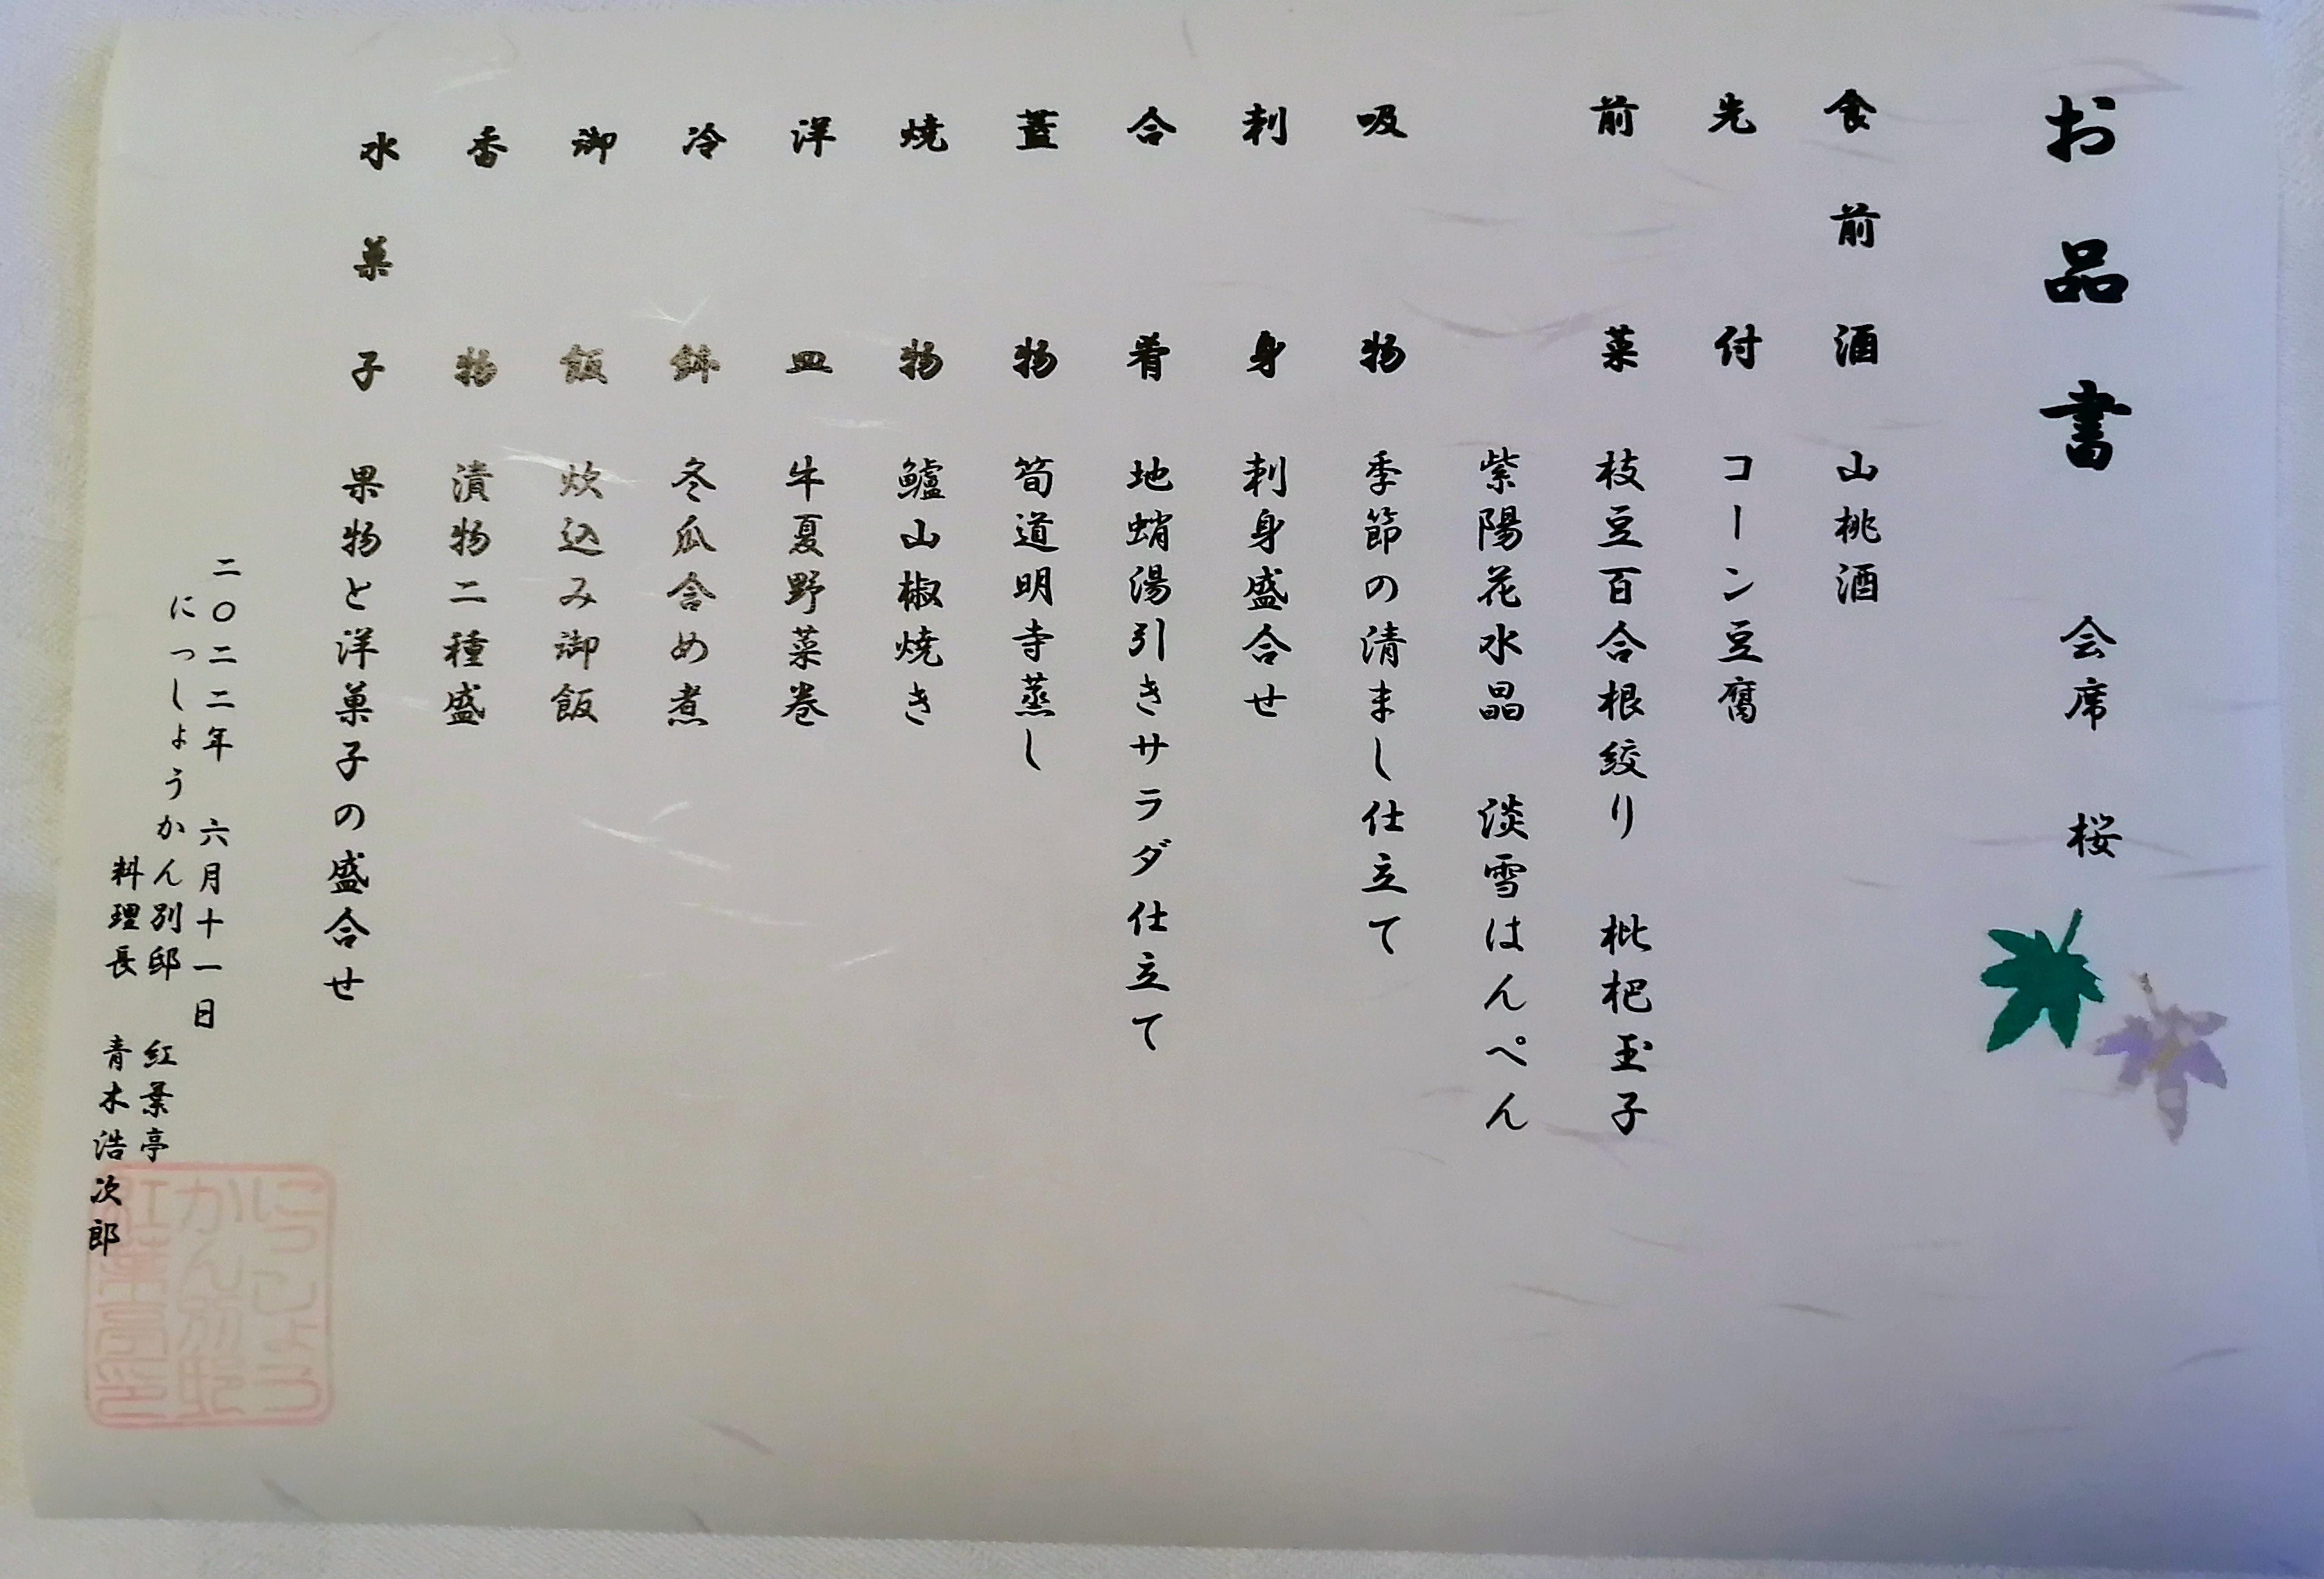 お品書　会席　桜
食前酒　山桃酒
先付　コーン豆腐
前菜　枝豆百合根絞り　枇杷玉子
紫陽花水晶　淡雪はんぺん
吸物　季節の清まし仕立て
刺身　刺身盛合せ
合肴　地蛸湯引きサラダ仕立て
蓋物　筍道明寺蒸し
焼物　鱸山椒焼き
洋皿　牛夏野菜巻
冷鉢　冬瓜含め煮
御飯　炊込み御飯
香物　漬物二種盛
水菓子　果物と洋菓子の盛合せ
二〇二二年　六月十一日
にっしょうかん別邸　紅葉亭
料理長　青木浩次郎
にっしょう
かん別邸
紅葉亭印